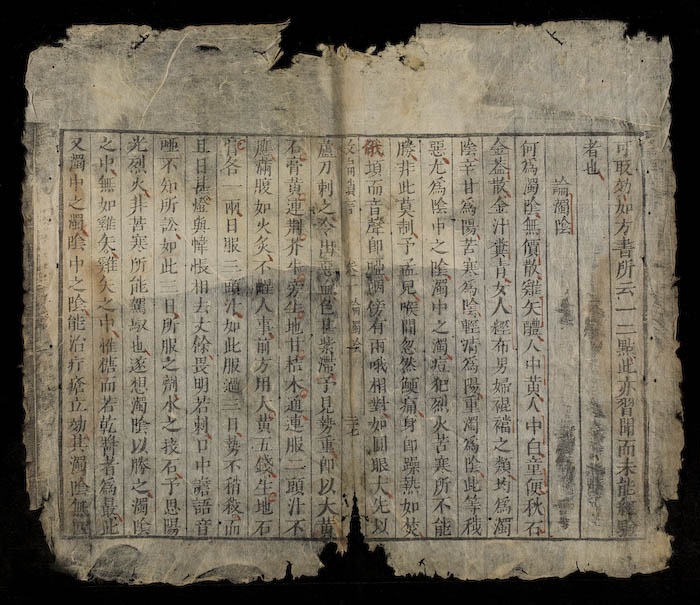 可取効如方書所云一二點此亦習聞而未能經驗
者也
論濁陰
何爲濁陰無價散雞矢醴人中黃人中白童便秋石
金益散金汁糞青女人經布男婦裩襠之類均爲濁
陰辛甘爲陽苦寒爲陰輕清爲陽重濁爲陰此等穢
惡尤爲陰中之陰濁中之濁痘犯烈火苦寒所不能
勝非此莫制予孟見喉間忽然痛身即躁熱如焚
俄頃而音聲即啞咽傍有兩哦相對如圓眼大先以
瑣言 卷一 論濁陰 三七
蘆刀刺之令出惡血色甚紫滯予見勢重即以大黃
石膏黃連荆芥牛蒡生地甘桔木通連服二頭汁不
應滿腹如火炙不人事前方用大黃五錢生地石
膏各一兩日服三頭汁如此服過三日勢不稍殺而
且日甚燈與幃帳相去丈餘畏明若刺口中譫語音
啞不知所訟如此三日所服之劑水之投石予思陽
光烈火非苦寒所能駕馭也遂想濁陰以勝之濁陰
之中無如雞矢雞矢之中惟而若乾醬者爲最此
又濁中之濁陰中之陰能治疔立効其濁陰無